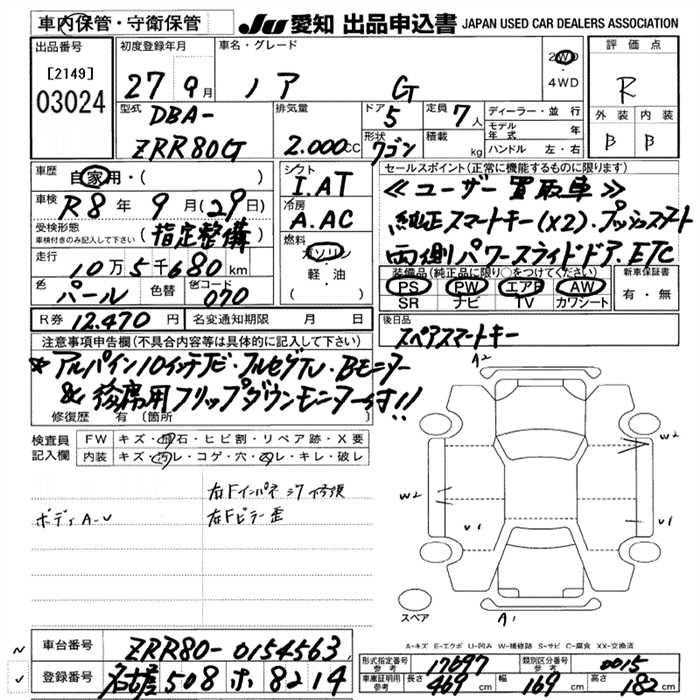 車内保管・守衛保管 JU 愛知 出品申込書 JAPAN USED CAR DEALERS ASSOCIATION
出品番号 [2149] 03024
初度登録年月 27 9月
車名・グレード ノア G
2WD・4WD
評価点 R
外装 B 内装 B
型式 DBA-ZRR80G
排気量 2.000CC
ドア 5 形状 ワゴン
定員 7人 積載 kg
ディーラー・並行
モデル年式 年
ハンドル 左・右
車歴 自家用・( )
車検 R8年 9月(29日)
受検形態 車検付きのみ記入して下さい (指定整備)
走行 10万5千680km
色 パール 色替 色コード 070
シフト I.AT
冷房 A.AC
燃料 ガソリン・軽・油
セールスポイント(正常に機能するものに限ります)
≪ユーザー買取車≫
純正スマートキー(X2)・プッシュスタート
両側パワースライドドア・ETC
装備品(純正品に限り○をつけてください)
PS PW エアB AW
SR ナビ TV カワシート
新車保証書 有・無
R券 12.470円 名変通知期限 月 日
後日品 スペアスマートキー
注意事項申告欄(不具合内容等は具体的に記入して下さい)
*アルパイン10インチナビ・フルセグTV・Bモニター
& 後席用フリップダウンモニター付!!
修復歴 有(箇所
検査員記入欄 FW キズ・飛石・ヒビ割・リペア跡・X要
内装 キズ・汚レ・コゲ・穴・スレ・キレ・破レ
右Fインパネ
ボディA-U 右Fピラー歪
A2
W2
W2
U1
U1
スペア A1
A-キズ E-エクボ U-凹み W-補修跡 S-サビ C-腐食 XX-交換済
車台番号 ZRR80-0154563
登録番号 名古屋 508 ホ 8214
形式指定番号 参考 17697 類別区分番号 参考 0015
車庫証明用 参考 長さ 469cm 幅 169cm 高さ 182cm